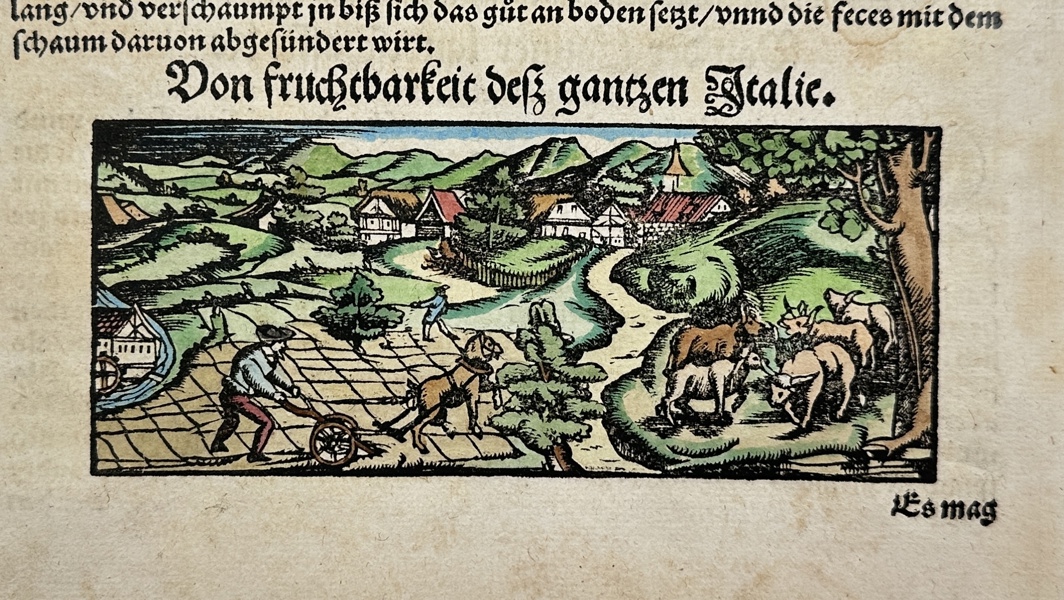 lang/vnd verschaumpt jn biß sich das gůt an boden setzt/vnnd die feces mit dem
schaum daruon abgesündert wirt.
Von fruchtbarkeit desz gantzen Italie.
Es mag